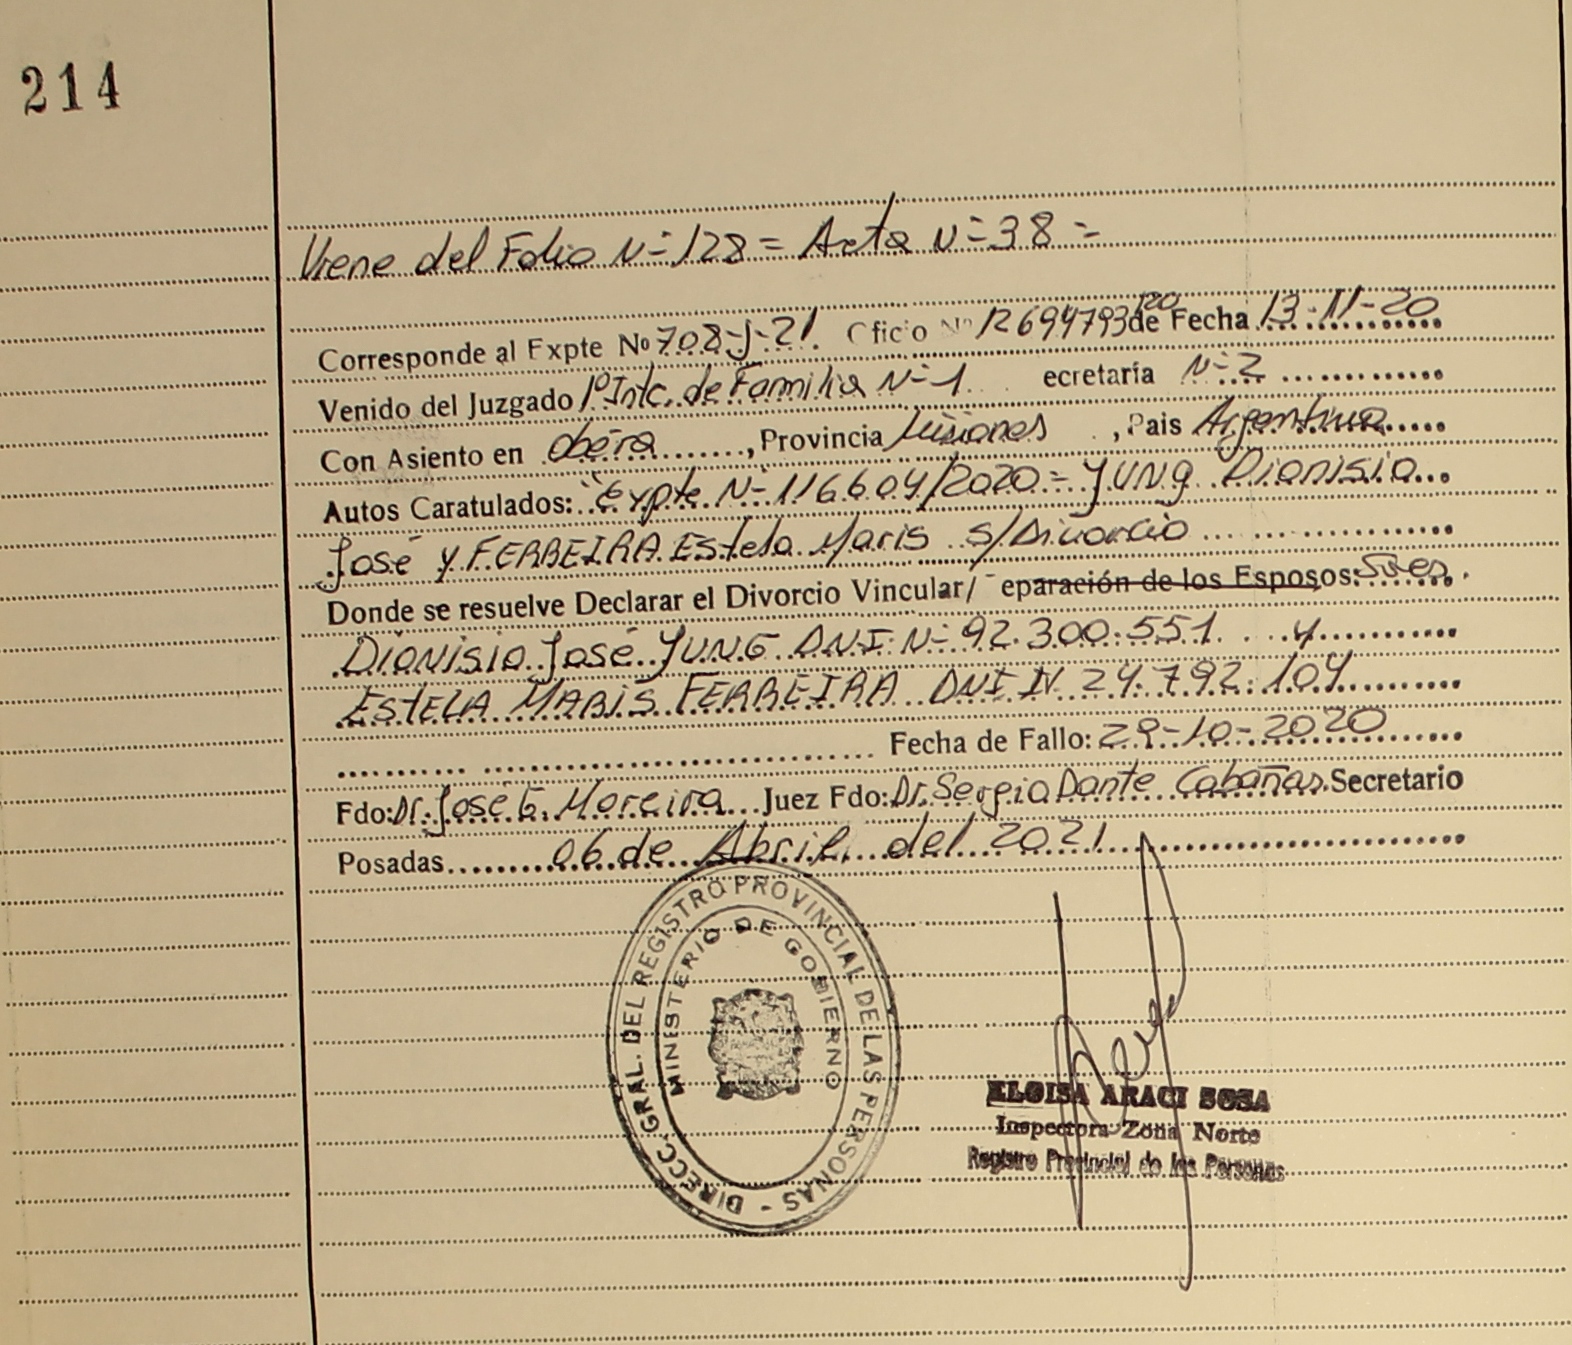 214
Viene del Folio Nº 128 = Acta Nº 38 =
Corresponde al Expte Nº 708-J-21. Oficio Nº 12694793/20 de Fecha 13-11-20
Venido del Juzgado 1º Intc. de Familia Nº 1 ecretaría Nº 2
Con Asiento en Oberá, Provincia Misiones, Pais Argentina
Autos Caratulados: "Expte Nº 116604/2020 = JUNG Dionisio
José y FERREIRA Estela Maris s/Divorcio
Donde se resuelve Declarar el Divorcio Vincular/ eparación de los Esposos: Sres.
DIONISIO José JUNG DNI Nº 92.300.551 y
ESTELA MARIS FERREIRA DNI N 24.792.104
Fecha de Fallo: 29-10-2020
Fdo: Dr. José G. Moreira Juez Fdo: Dr. Sergio Dante Cabañas Secretario
Posadas 06 de Abril del 2021
DIRECC. GRAL. DEL REGISTRO PROVINCIAL DE LAS PERSONAS -
MINISTERIO DE GOBIERNO
ELOISA ARACI SOSA
Inspectora Zona Norte
Registro Provincial de las Personas